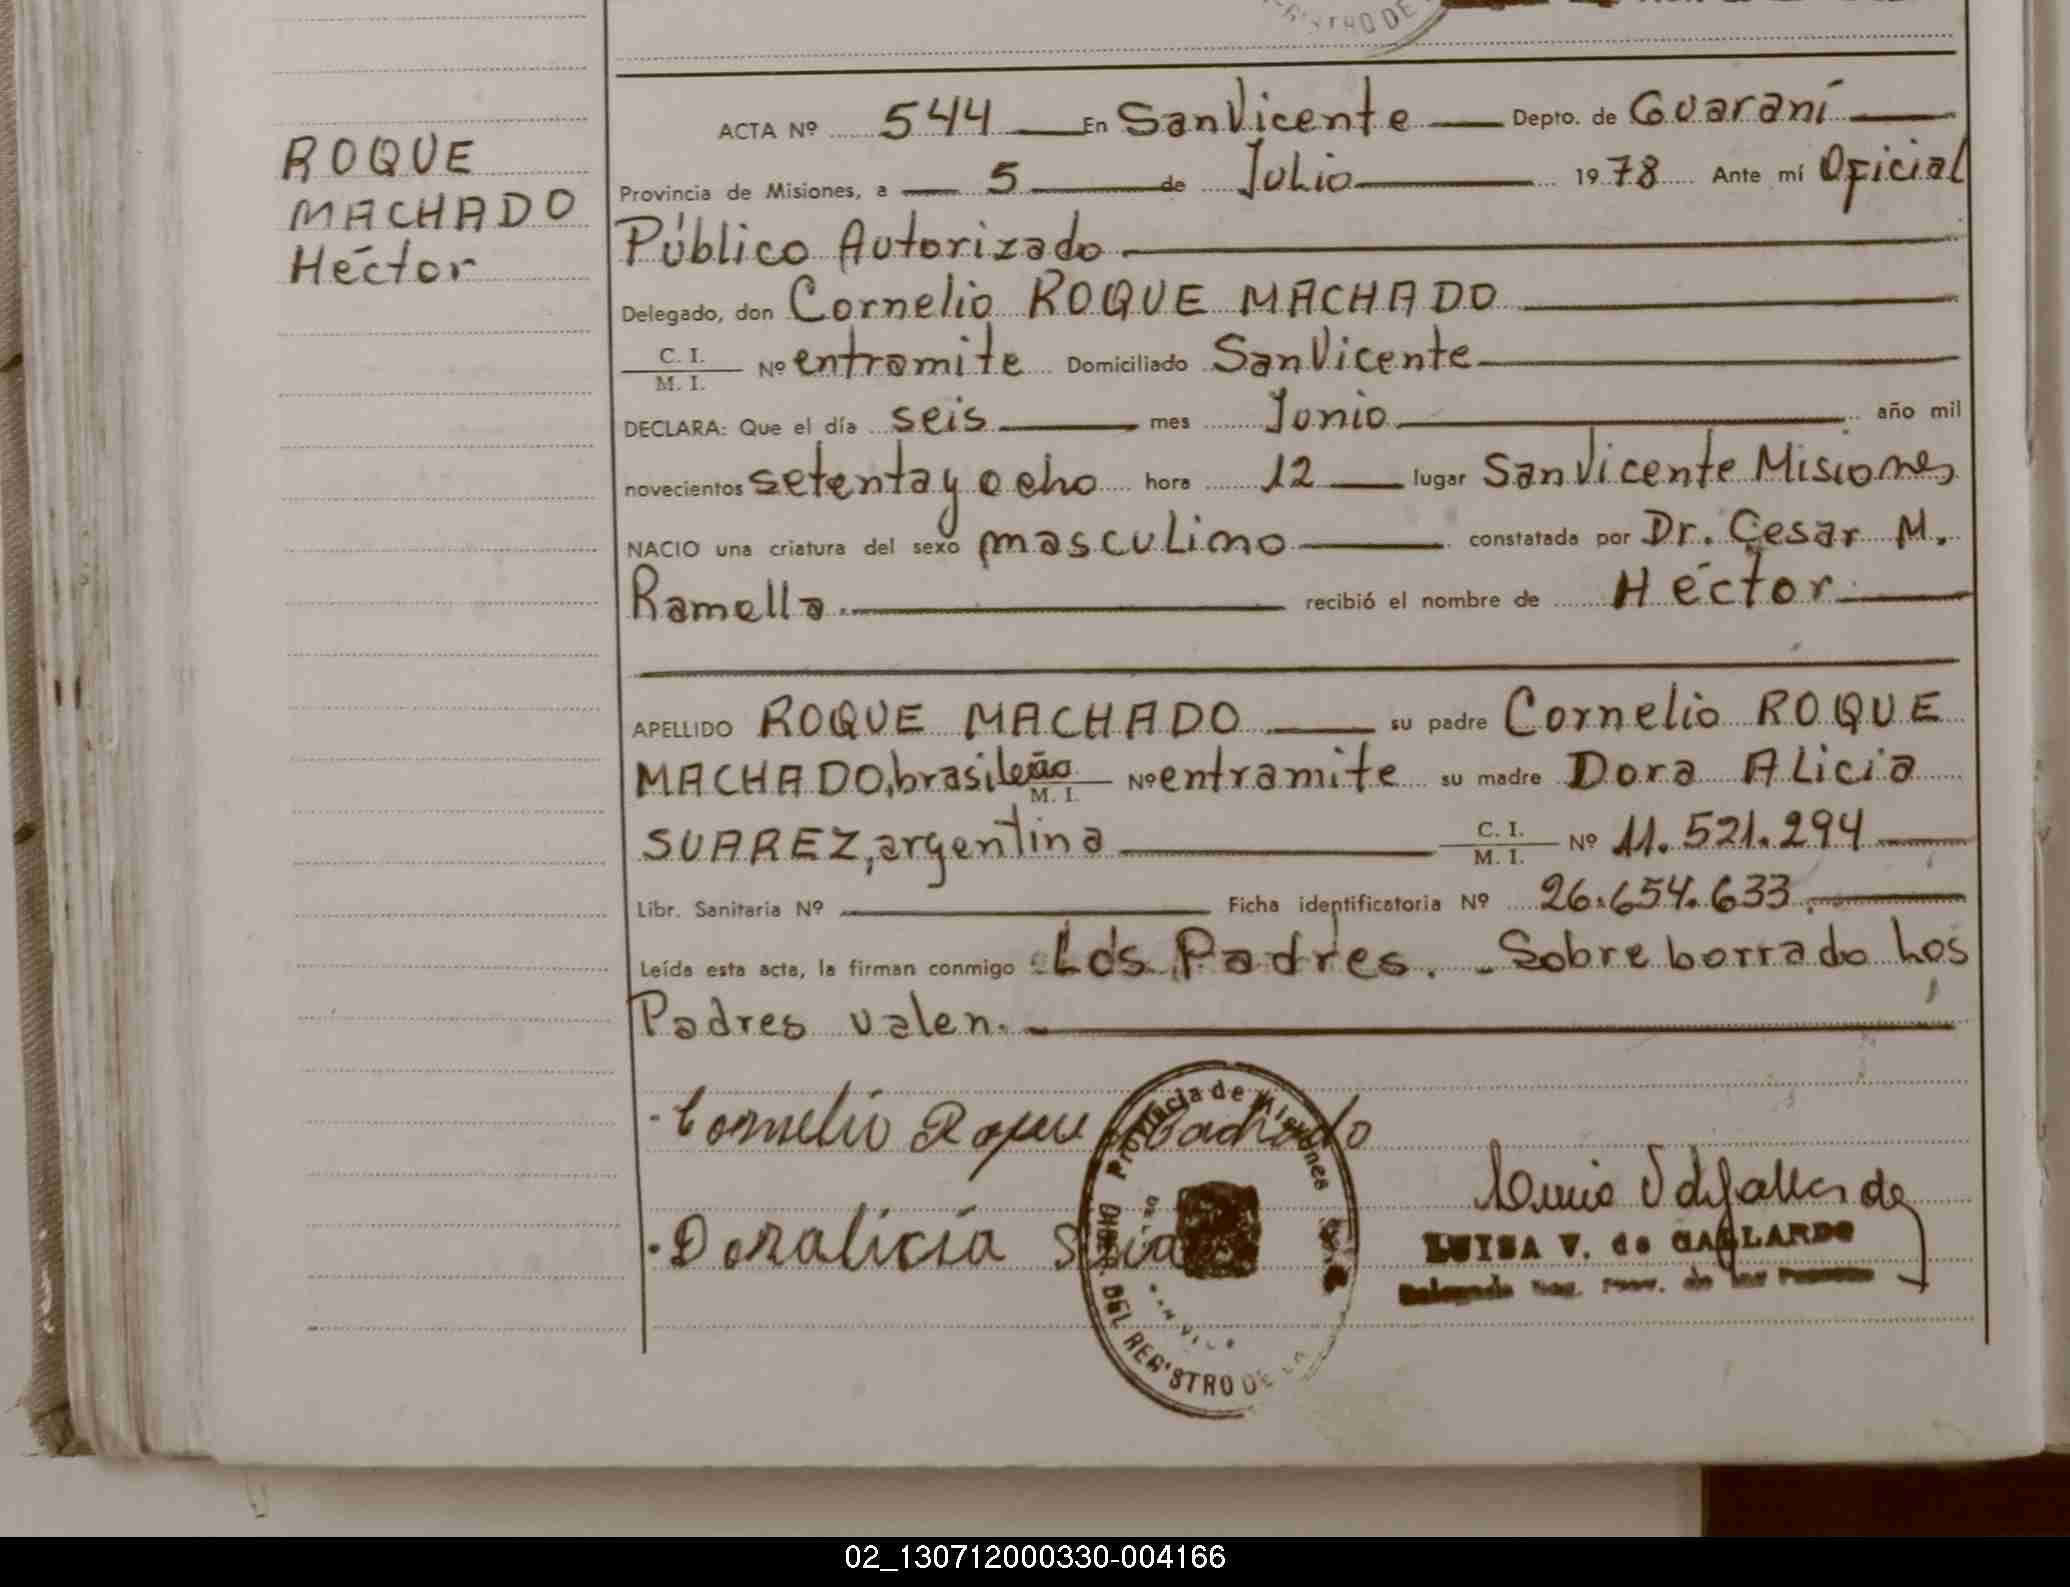 ROQUE
MACHADO
Héctor
ACTA Nº 544 En San Vicente Depto. de Guaraní
Provincia de Misiones, a 5 de Julio 1978 Ante mí Oficial
Público Autorizado
Delegado, don Cornelio ROQUE MACHADO
C. I.
M. I. Nº entramite Domiciliado San Vicente
DECLARA: Que el día seis mes Junio año mil
novecientos setenta y ocho hora 12 lugar San Vicente Misiones
NACIO una criatura del sexo masculino constatada por Dr. Cesar M.
Ramella recibió el nombre de Héctor
APELLIDO ROQUE MACHADO su padre Cornelio ROQUE
MACHADO, brasileño M. I. Nº entramite su madre Dora Alicia
SUAREZ, argentina C. I. M. I. Nº 11.521.294
Libr. Sanitaria Nº Ficha identificatoria Nº 26.654.633
Leída esta acta, la firman conmigo Los Padres. - Sobre borrado Los
Padres valen.
Cornelio Roque Machado
Doralicia
Provincia de Misiones
DEL REGISTRO DE
LUISA V. de GALLARDO
02_130712000330-004166